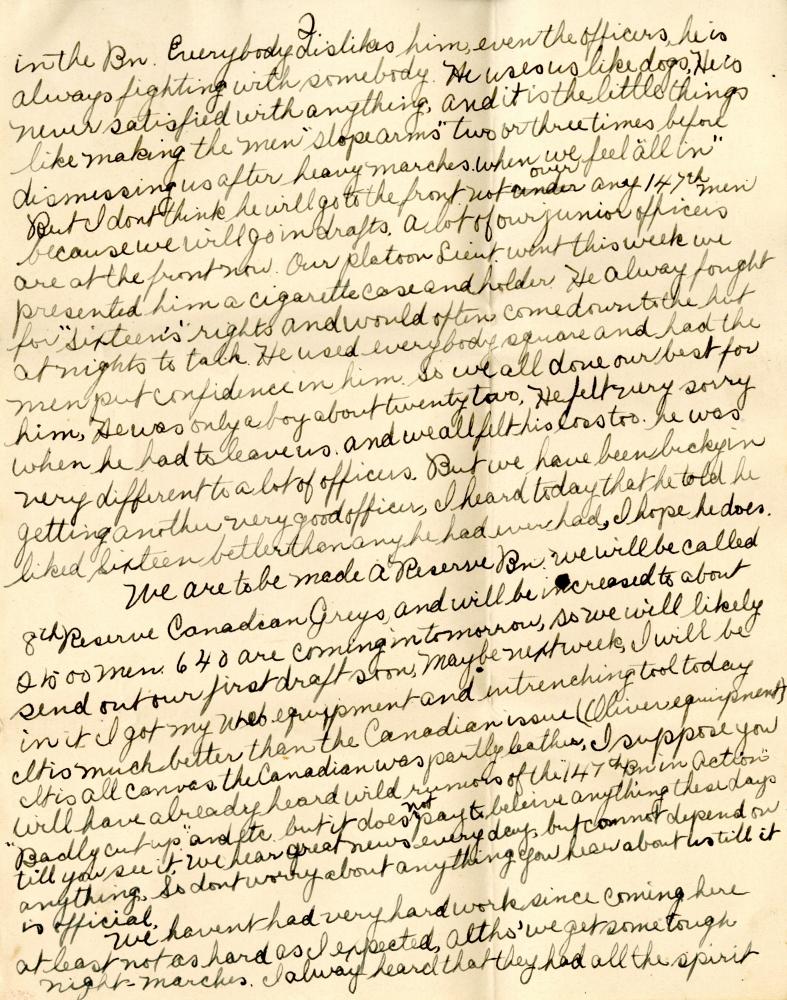 2
in the Bn. Everybody dislikes him, even the officers, he is
always fighting with somebody. He uses us like dogs, He is
never satisfied with anything, and it is the little things
like making the men "slope arms" two or three times before
dismissing us after heavy marches. when we feel "all in"
But I dont think he will go to the front not under over any 147th men
because we will go in drafts. A lot of our junior officers
are at the front now. Our platoon Lieut. went this week we
presented him a cigarette case and holder. He alway fought
for "Sixteen's" rights and would often come down to the hut
at nights to talk. He used everybody square and had the
men put confidence in him. so we all done our best for
him, He was only a boy about twenty two, He felt very sorry
when he had to leave us. and we all felt his loss too. he was
very different to a lot of officers. But we have been lucky in
getting another very good officer, I heard today that he told he
liked Sixteen better than any he had ever had, I hope he does.
We are to be made a Reserve Bn. we will be called
8th Reserve Canadian Greys, and will be increased to about
2500 men. 640 are coming in tomorrow, so we will likely
send out our first draft soon, Maybe next week, I will be
in it I got my Web equipment and entrenching tool today
It is much better than the Canadian issue (Oliver equipment)
It is all canvas the Canadian was partly leather, I suppose you
will have already heard wild rumors of the "147th Bn in action"
"Badly cut up" and etc. but it does not pay to beleive anything these days
till you see it, We hear great news every day, but cannot depend on
anything. So dont worry about anything you hear about us till it
is official.
We havent had very hard work since coming here
at least not as hard as I expected, altho' we get some tough
night-marches. I alway heard that they had all the spirit